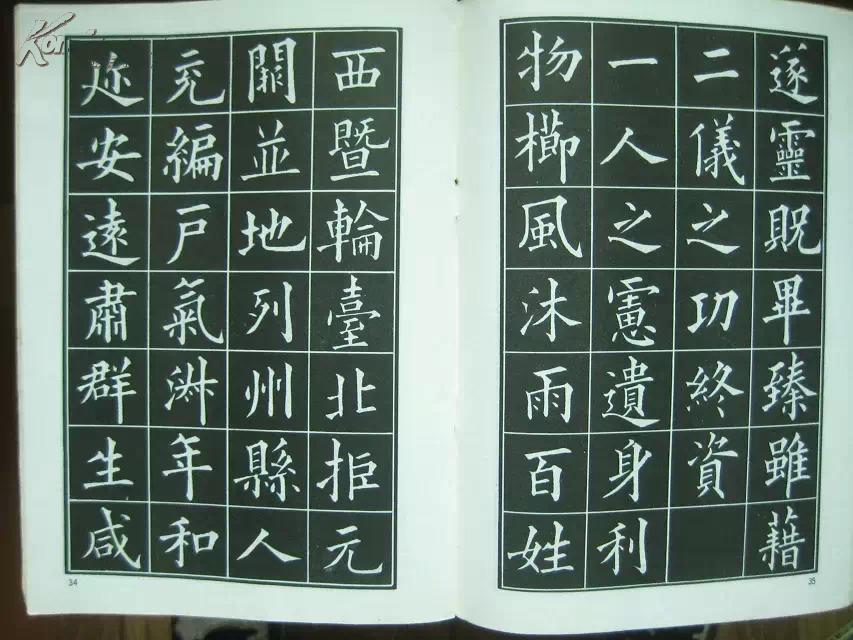 西暨輪臺北拒元
闕並地列州縣人
充編戶氣淑年和
迩安遠肅群生咸
34
遂靈貺畢臻雖藉
二儀之功終資
一人之慮遺身利
物櫛風沐雨百姓
35